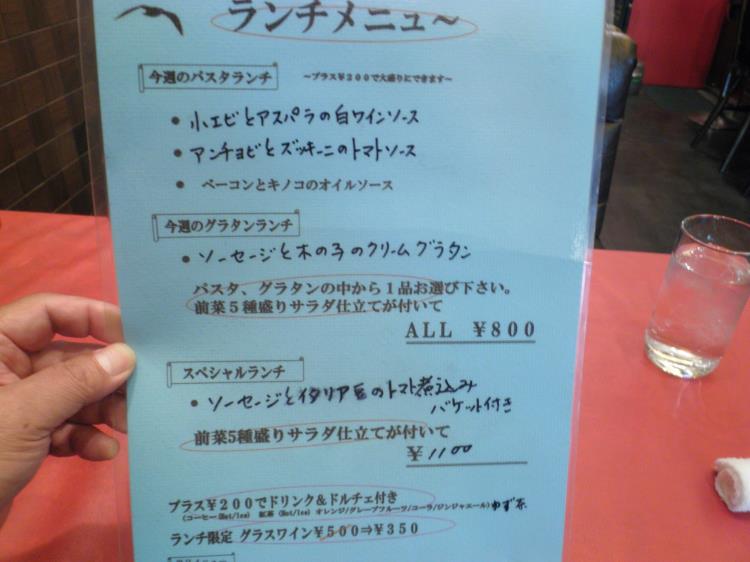 ランチメニュ～
今週のパスタランチ ～プラス¥200で大盛りにできます～
• 小エビとアスパラの白ワインソース
• アンチョビとズッキーニのトマトソース
• ベーコンとキノコのオイルソース
今週のグラタンランチ
• ソーセージと木の子のクリームグラタン
パスタ、グラタンの中から１品お選び下さい。
前菜５種盛りサラダ仕立てが付いて
ALL ¥800
スペシャルランチ
• ソーセージとイタリア豆のトマト煮込み
バケット付き
前菜5種盛りサラダ仕立てが付いて
¥1100
プラス¥200でドリンク＆ドルチェ付き
(コーヒー(Hot/Ice) 紅茶(Hot/Ice) オレンジ/グレープフルーツ/コーラ/ジンジャエール) ゆず茶
ランチ限定 グラスワイン¥500⇒¥350